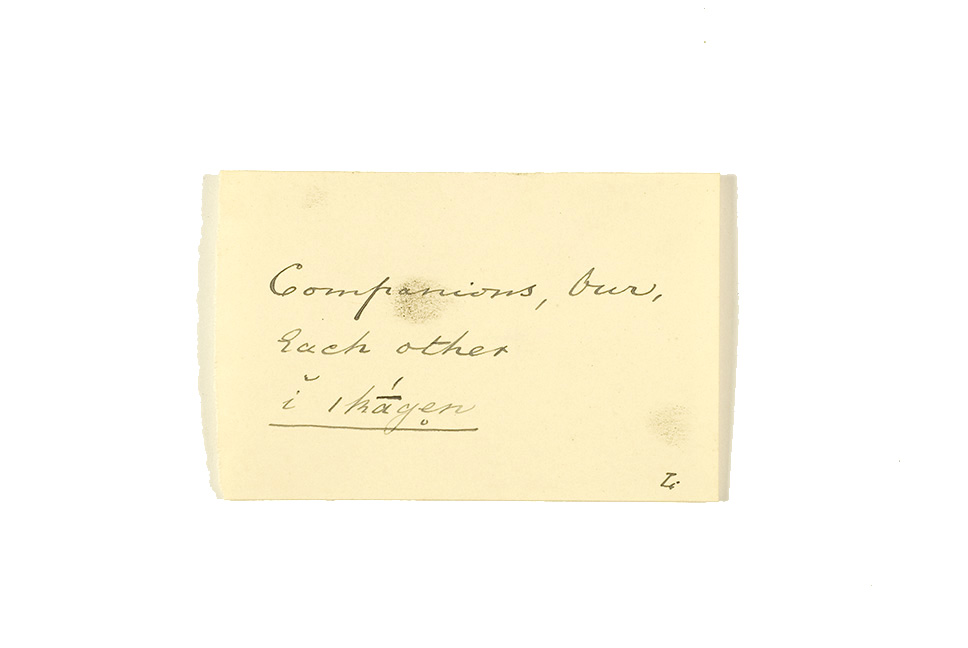 Companions, Our,
Each other
ĭ iká̱gen̥
Z.